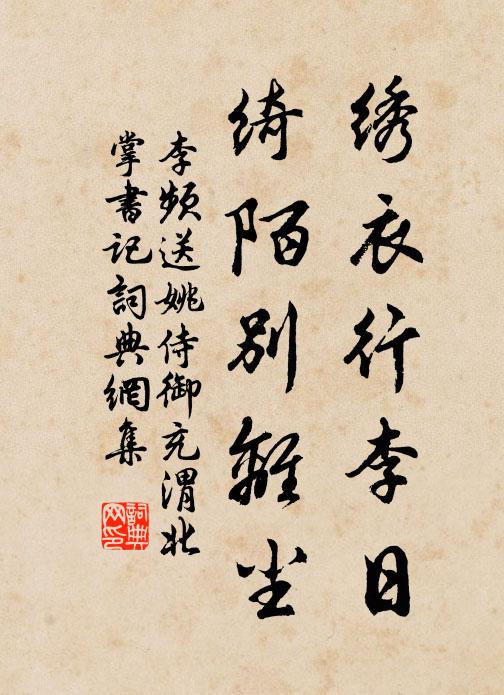 绣衣行李日
绮陌别離尘
李频送姚侍御充渭北
掌書记詞典網集
詞典网印